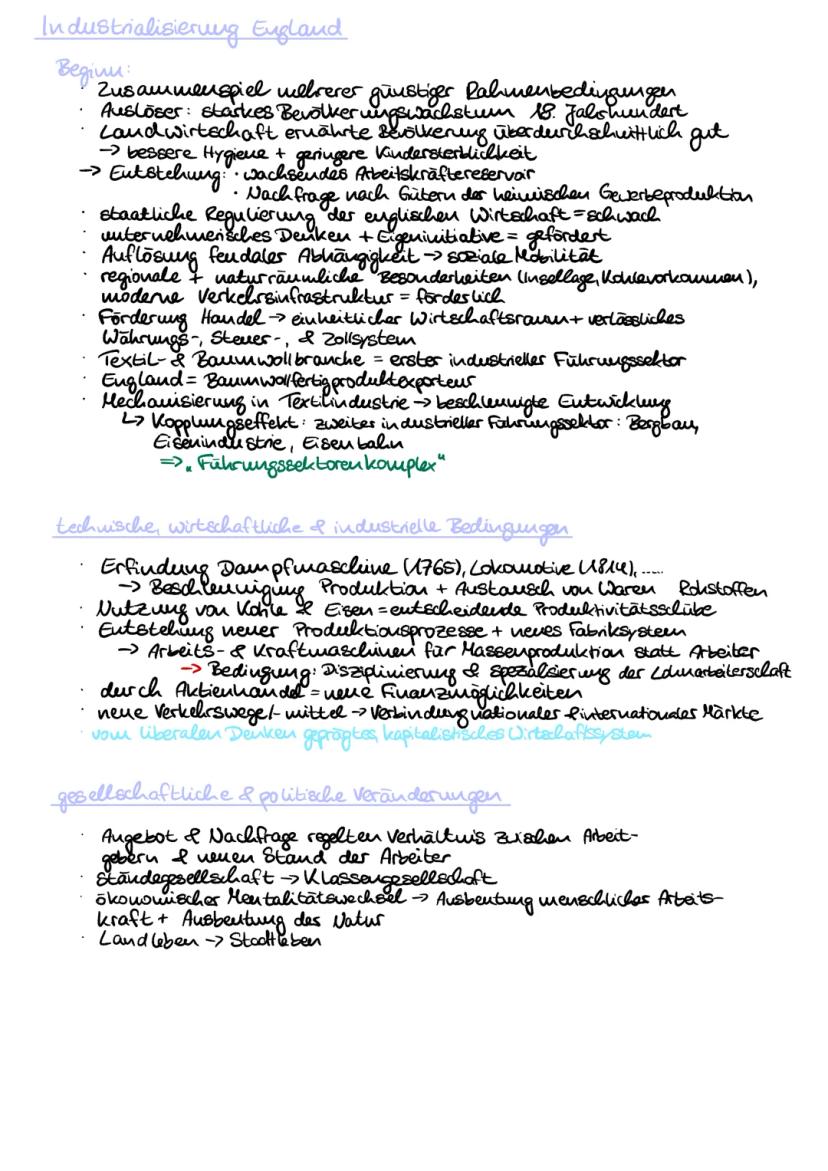 Industrialisierung England
Beginn:
· Zusammenspiel mehrerer günstiger Rahmenbedingungen
· Auslöser: starkes Bevölkerungswachstum 18. Jahrhundert
· Landwirtschaft ernährte Bevölkerung überdurchschnittlich gut
→ bessere Hygiene + geringere Kindersterblichkeit
→ Entstehung: · wachsendes Arbeitskräftereservoir
· Nachfrage nach Gütern der heimischen Gewerbeproduktion
· staatliche Regulierung der englischen Wirtschaft = schwach
· unternehmerisches Denken + Eigeninitiative = gefördert
· Auflösung feudaler Abhängigkeit → soziale Mobilität
· regionale + naturräumliche Besonderheiten (Insellage, Kohlevorkommen),
moderne Verkehrsinfrastruktur = förderlich
· Förderung Handel → einheitlicher Wirtschaftsraum + verlässliches
Währungs-, Steuer-, & Zollsystem
· Textil- & Baumwollbranche = erster industrieller Führungssektor
· England = Baumwollfertigproduktexporteur
· Mechanisierung in Textilindustrie → beschleunigte Entwicklung
↳ Kopplungseffekt: zweiter industrieller Führungssektor: Bergbau,
Eisenindustrie, Eisenbahn
=> „Führungssektorenkomplex"
technische, wirtschaftliche & industrielle Bedingungen
· Erfindung Dampfmaschine (1765), Lokomotive (1814), .....
→ Beschleunigung Produktion + Austausch von Waren Rohstoffen
· Nutzung von Kohle & Eisen = entscheidende Produktivitätsschübe
· Entstehung neuer Produktionsprozesse + neues Fabriksystem
→ Arbeits- & Kraftmaschinen für Massenproduktion statt Arbeiter
→ Bedingung: Disziplinierung & Spezialsierung der Lohnarbeiterschaft
· durch Aktienhandel = neue Finanzmöglichkeiten
· neue Verkehrswege/-mittel → Verbindung nationaler & internationaler Märkte
· vom liberalen Denken geprägtes, kapitalistisches Wirtschaftssystem
gesellschaftliche & politische Veränderungen
· Angebot & Nachfrage regelten Verhältnis zwischen Arbeit-
gebern & neuen Stand der Arbeiter
· Ständegesellschaft → Klassengesellschaft
· ökonomischer Mentalitätswechsel → Ausbeutung menschlicher Arbeits-
kraft + Ausbeutung des Natur
· Landleben → Stadtleben